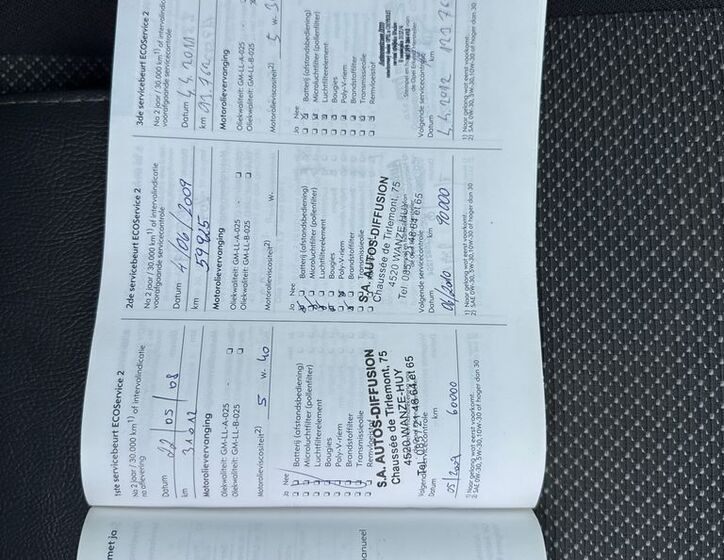 1ste servicebeurt ECOService 2
Na 2 jaar / 30.000 km1) of intervalindicatie
na aflevering
Datum 22/05/08
km
Motorolievervanging
Oliekwaliteit: GM-LL-A-025
Oliekwaliteit: GM-LL-B-025
Motorolieviscositeit2) 5 w. 40
Ja Nee
Batterij (afstandsbediening)
Microluchtfilter (pollenfilter)
Luchtfilterelement
Bougies
Poly-V-riem
Brandstoffilter
Transmissieolie
Remvloeistof
S.A. AUTOS-DIFFUSION
Chaussée de Tirlemont, 75
4520 WANZE-HUY
Tél. 085/21 48 64 et 65
Volgende servicecontrole
Datum km
60000
1) Naar gelang wat eerst voorkomt.
2) SAE 0W-30, 5W-30, 10W-30 of hoger dan 30
2de servicebeurt ECOService 2
Na 2 jaar / 30.000 km1) of intervalindicatie
voorafgaande servicecontrole
Datum 4/06/2009
km 59925
Motorolievervanging
Oliekwaliteit: GM-LL-A-025
Oliekwaliteit: GM-LL-B-025
Motorolieviscositeit2) w.
Ja Nee
Batterij (afstandsbediening)
Microluchtfilter (pollenfilter)
Luchtfilterelement
Bougies
Poly-V-riem
Brandstoffilter
Transmissieolie
S.A. AUTOS-DIFFUSION
Chaussée de Tirlemont, 75
4520 WANZE-HUY
Tél. 085/21 48 64 et 65
Volgende servicecontrole
Datum km
06/2010 90000
1) Naar gelang wat eerst voorkomt.
2) SAE 0W-30, 5W-30, 10W-30 of hoger dan 30
3de servicebeurt ECOService 2
Na 2 jaar / 30.000 km1) of intervalindicatie
voorafgaande servicecontrole
Datum 4.4.2011
km
Motorolievervanging
Oliekwaliteit: GM-LL-A-025
Oliekwaliteit: GM-LL-B-025
Motorolieviscositeit2) 5 w.
Ja Nee
Batterij (afstandsbediening)
Microluchtfilter (pollenfilter)
Luchtfilterelement
Bougies
Poly-V-riem
Brandstoffilter
Transmissieolie
Remvloeistof
Volgende servicecontrole
Datum km
4.4.2012
1) Naar gelang wat eerst voorkomt.
2) SAE 0W-30, 5W-30, 10W-30 of hoger dan 30
met ja